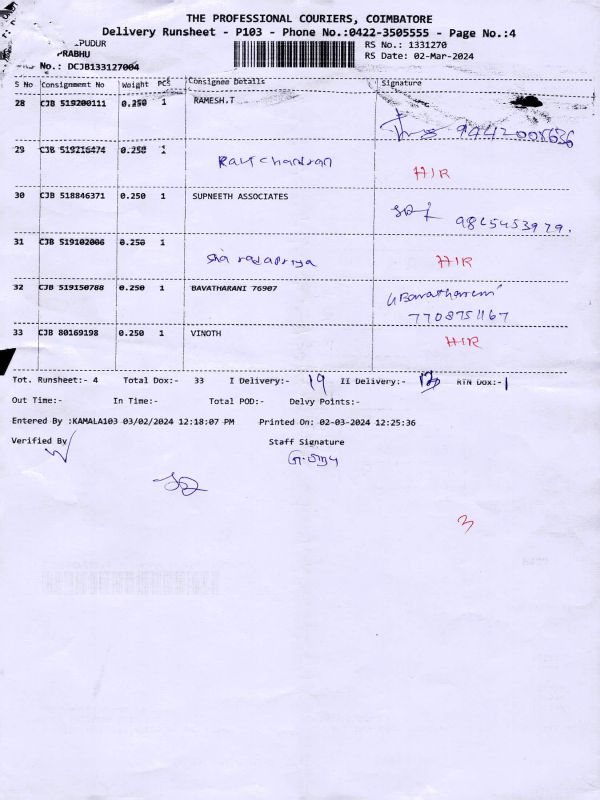 THE PROFESSIONAL COURIERS, COIMBATORE
Delivery Runsheet - P103 - Phone No.:0422-3505555 - Page No.:4
PUDUR
RS No.: 1331270
PRABHU
RS Date: 02-Mar-2024
No.: DCJB133127004
S No Consignment No Weight PCS Consignee Details Signature
28 CJB 519200111 0.250 1 RAMESH,T
29 CJB 519216474 0.250 1 Ravi chandran HIR
30 CJB 518846371 0.250 1 SUPNEETH ASSOCIATES
9865453979.
31 CJB 519102006 0.250 1 Sha radapriya HIR
32 CJB 519150788 0.250 1 BAVATHARANI 76907
7708751167
33 CJB 80169198 0.250 1 VINOTH HIR
Tot. Runsheet:- 4 Total Dox:- 33 I Delivery:- 19 II Delivery:- RTN Dox:- 1
Out Time:- In Time:- Total POD:- Delvy Points:-
Entered By :KAMALA103 03/02/2024 12:18:07 PM Printed On: 02-03-2024 12:25:36
Verified By Staff Signature
3